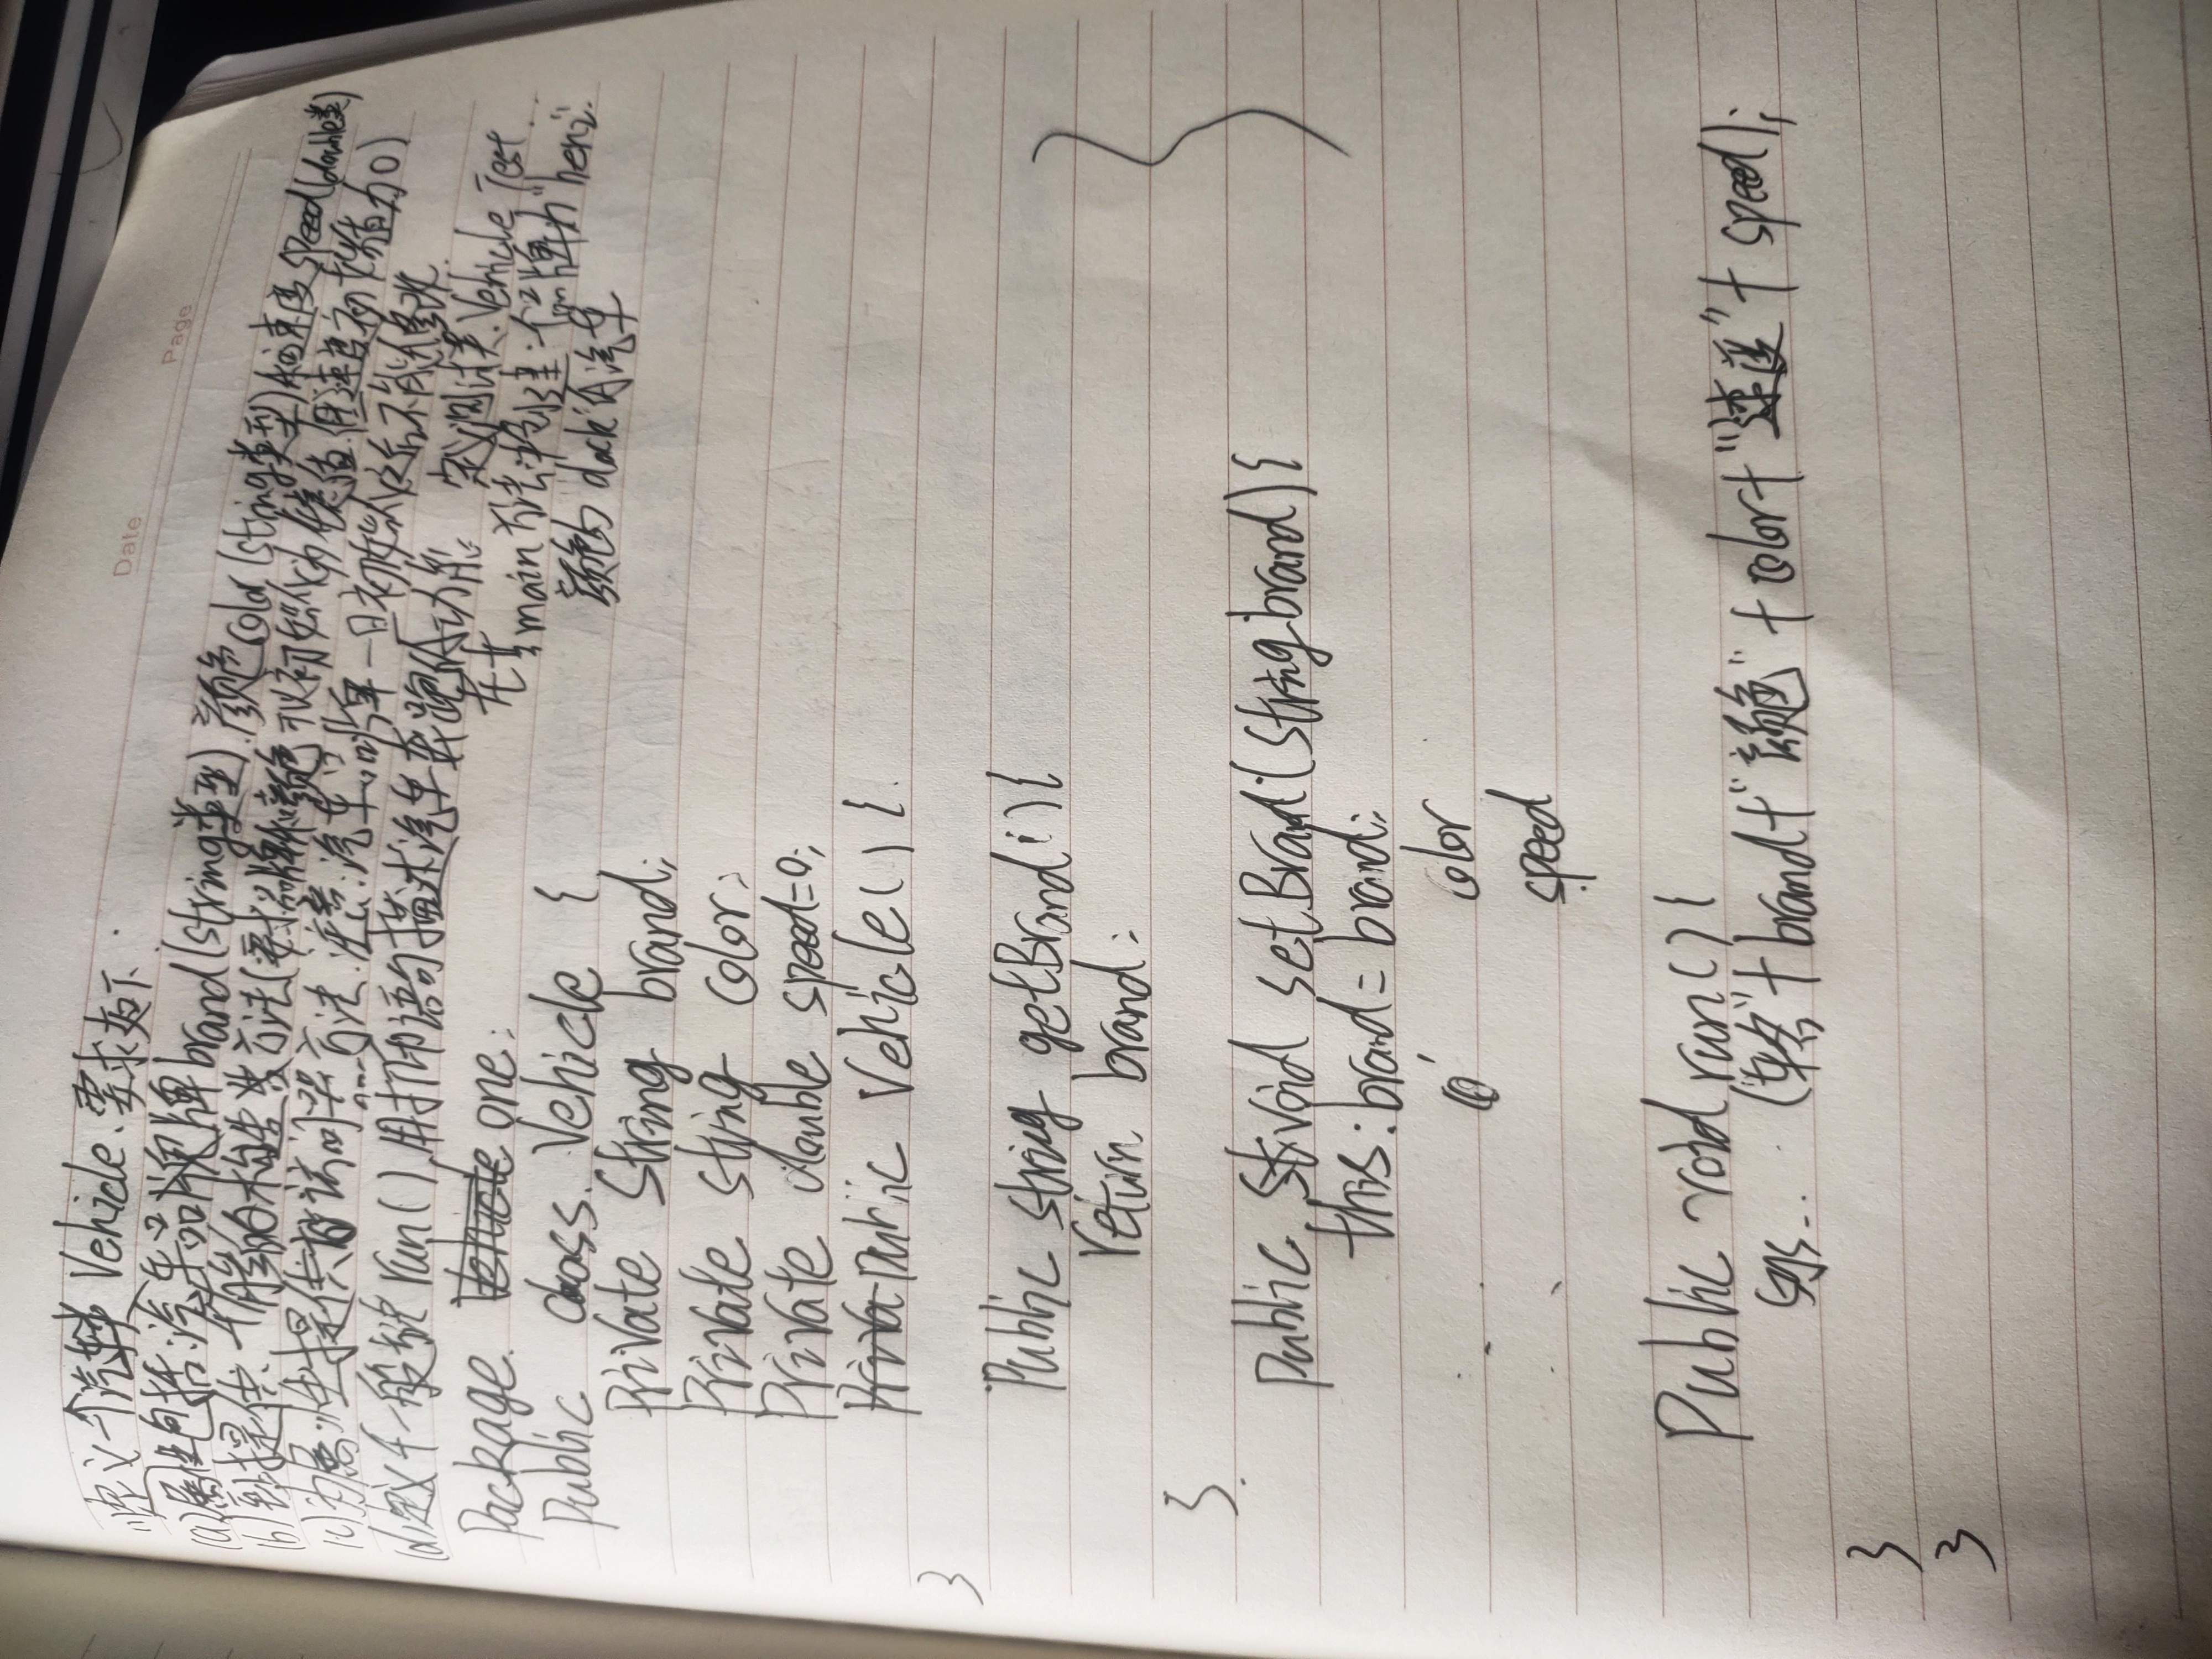 Date Page
定义一个汽车类Vehicle.要求如下.
(a)属性包括:汽车品牌brand(string类型).颜色color(string类型)和速度speed(double类)
(b)至少提供一个有参的构造方法(要求品牌和颜色可以初始化为任意值.但速度初始值为0)
(c)为属性提供访问器方法.注意:汽车品牌一旦初始化之后不能修改.
(d)定义一个一般方法run(),用打印语句描述汽车奔跑的功能.
定义测试类.Vehicle Test
在其main方法中创建一个品牌为"benz"
颜色为"black"的汽车
Package. one;
Public class. Vehicle {
Private String brand;
Private string color;
Private double speed=0;
Public Vehicle() {
}
Public string getBrand() {
return brand;
}.
Public void setBrand(string brand) {
this.brand = brand;
color
speed
Public void run() {
sys... (车名"+brand+"颜色"+color+"速度"+speed);
}
}